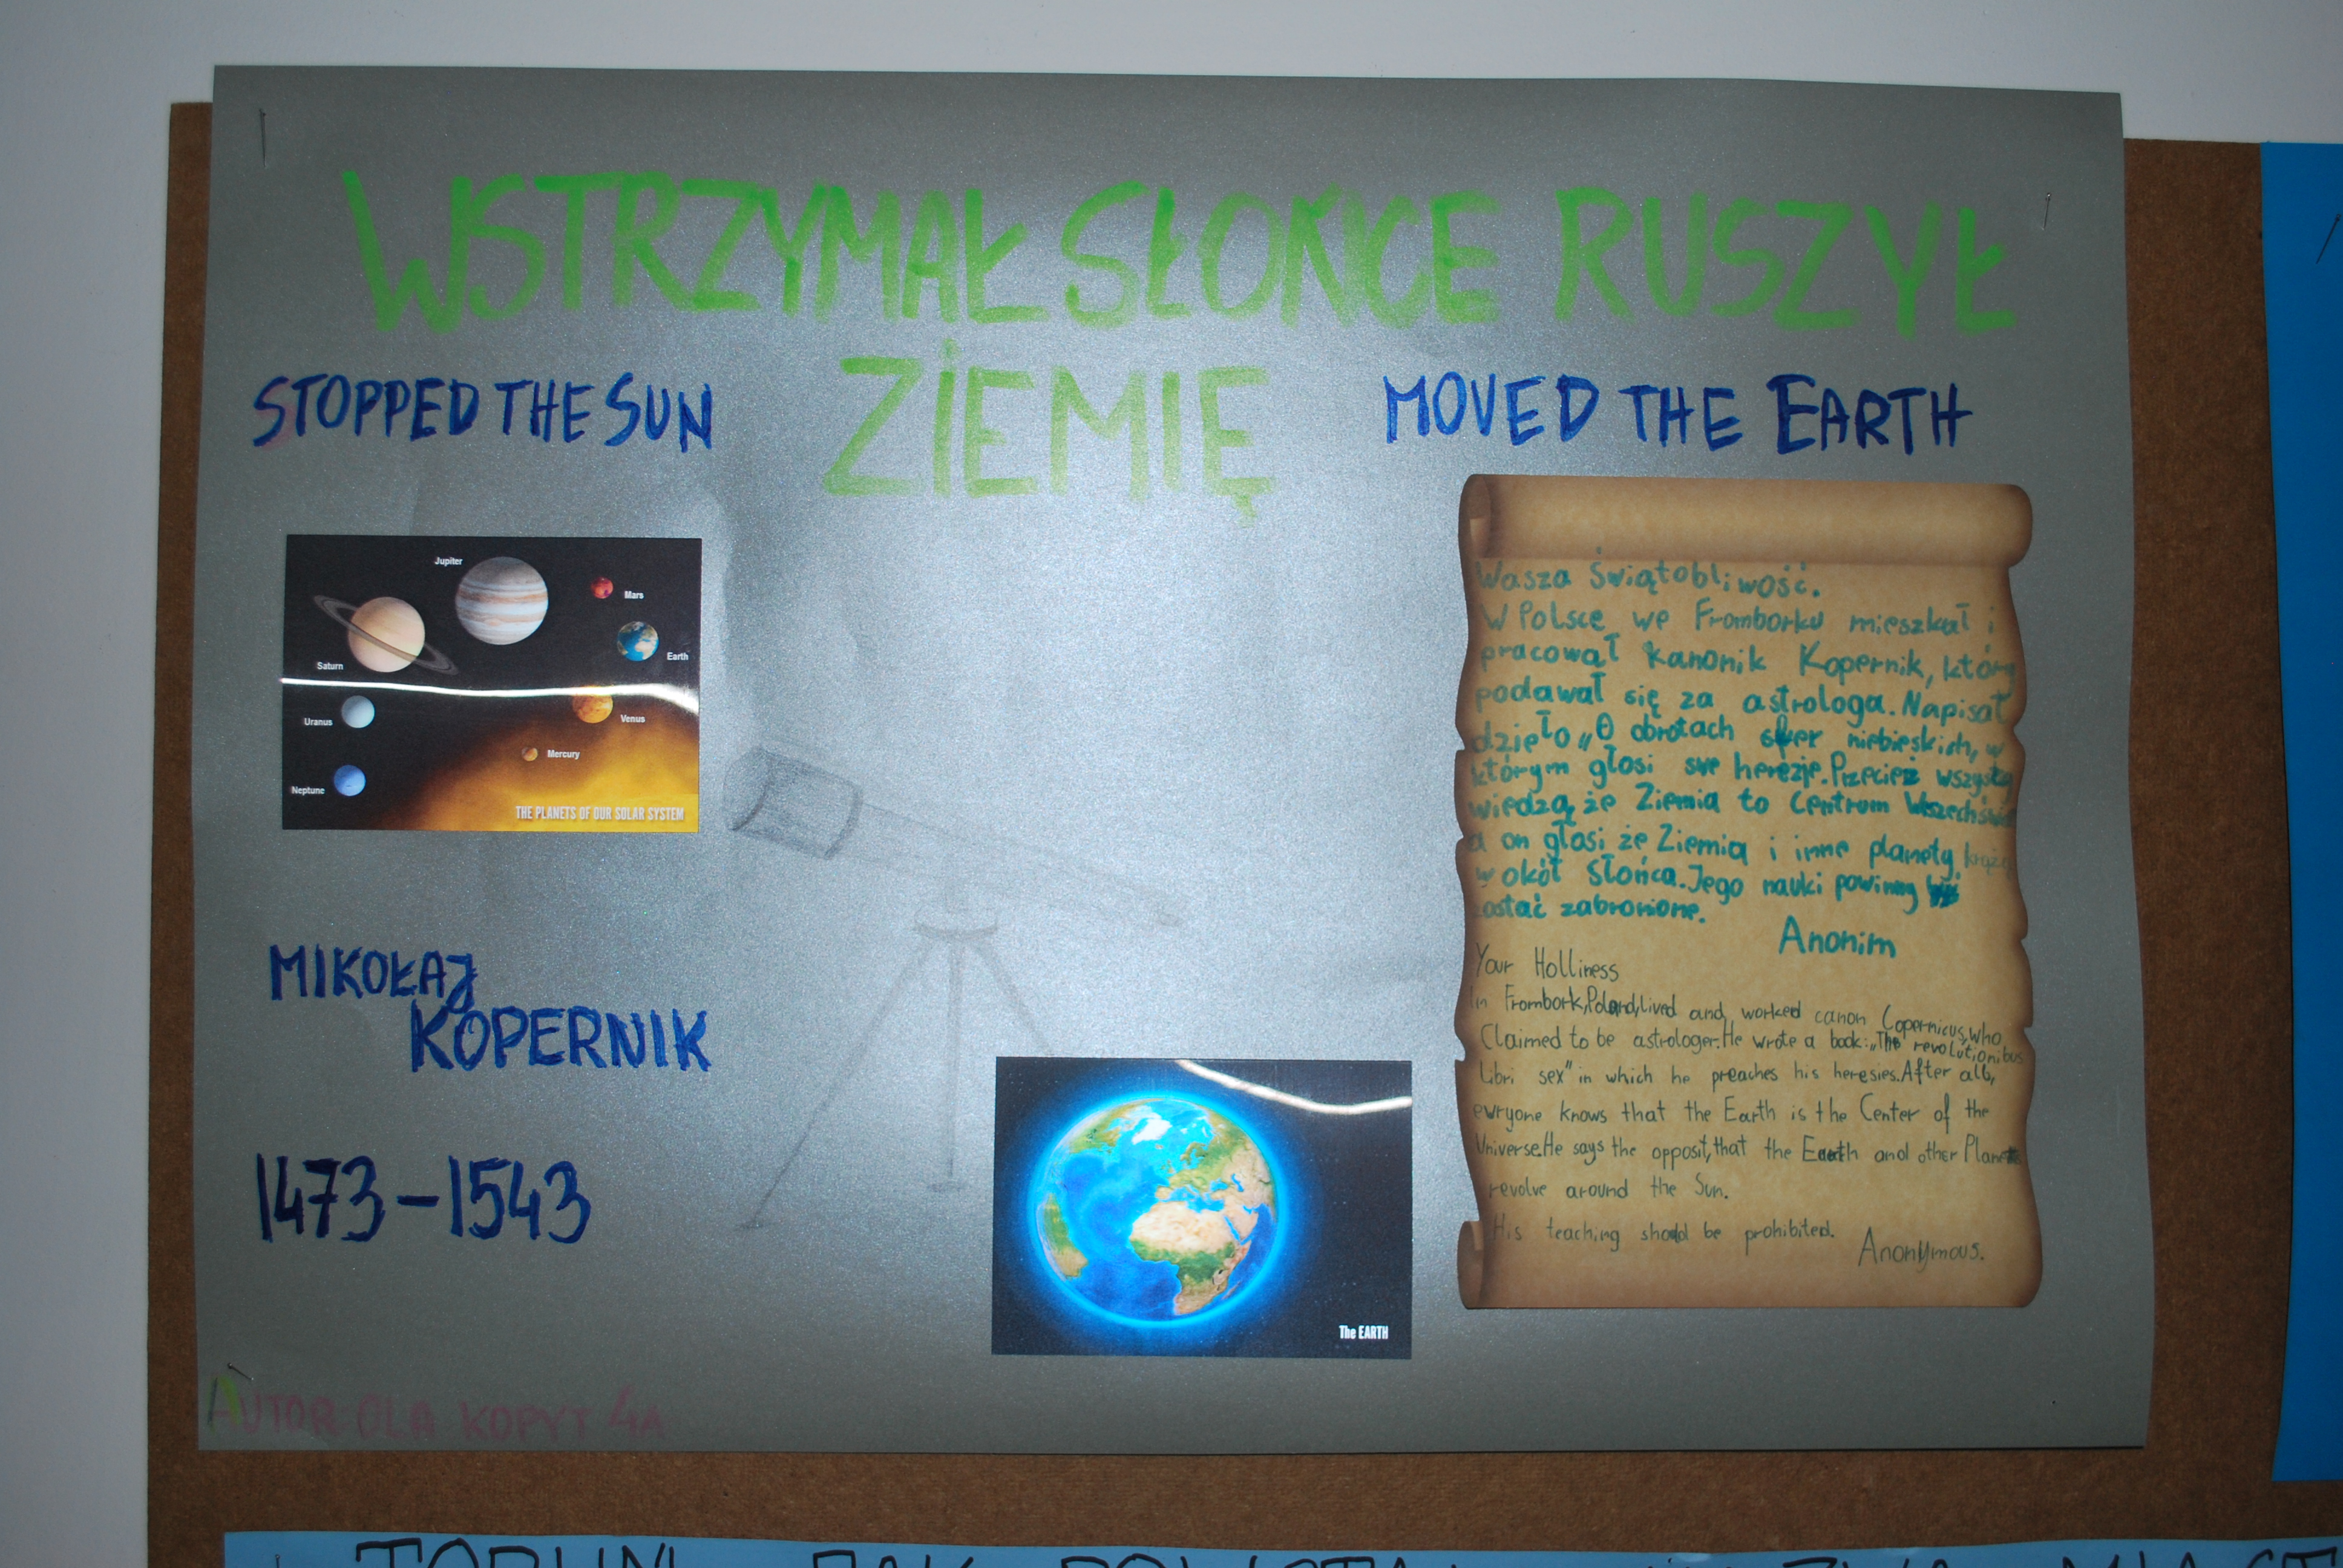 WSTRZYMAŁ SŁOŃCE RUSZYŁ
ZIEMIĘ
STOPPED THE SUN
MOVED THE EARTH
Jupiter
Mars
Earth
Saturn
Uranus
Venus
Mercury
Neptune
THE PLANETS OF OUR SOLAR SYSTEM
MIKOŁAJ
KOPERNIK
1473-1543
The EARTH
Wasza Świątobliwość.
W Polsce we Fromborku mieszkał i
pracował kanonik Kopernik, który
podawał się za astrologa. Napisał
dzieło „O obrotach sfer niebieskich, w
którym głosi swe herezje. Przecież wszyscy
wiedzą, że Ziemia to Centrum Wszechświa
a on głosi że Ziemia i inne planety krążą
w okół Słońca. Jego nauki powinny
zostać zabronione.
Anonim
Your Holliness
In Frombork, Poland, lived and worked canon Copernicus, who
Claimed to be astrologer. He wrote a book: „The revolutionibus
libri sex" in which he preaches his heresies. After all,
evryone knows that the Earth is the Center of the
Universe. He says the opposit, that the Earth and other Planets
revolve around the Sun.
His teaching should be prohibited.
Anonymous.
AUTOR OLA KOPYT 4A
TORUN JAK